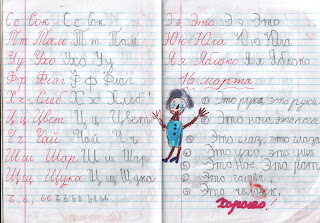 Сс Сок Сс Сок
Тт Там Тт Там
Уу Ухо Уу Ухо
Фф Флаг Фф Флаг
Хх Хлеб Хх Хлеб
Цц Цвет Цц Цвет
Чч Чай Чч Ч
Шш Шар Шш Шар
Щщ Щука Щщ Щука
Ээ Это Ээ Это
Юю Юла Юю Юла
Яя Яблоко Яя Яблоко
16 марта
Это рука, это руки.
Это нога, это
Это глаз, это глаза.
Это ухо, это уши
Это нос. Это рот
Это голова.
Это человек.
Хорошо!